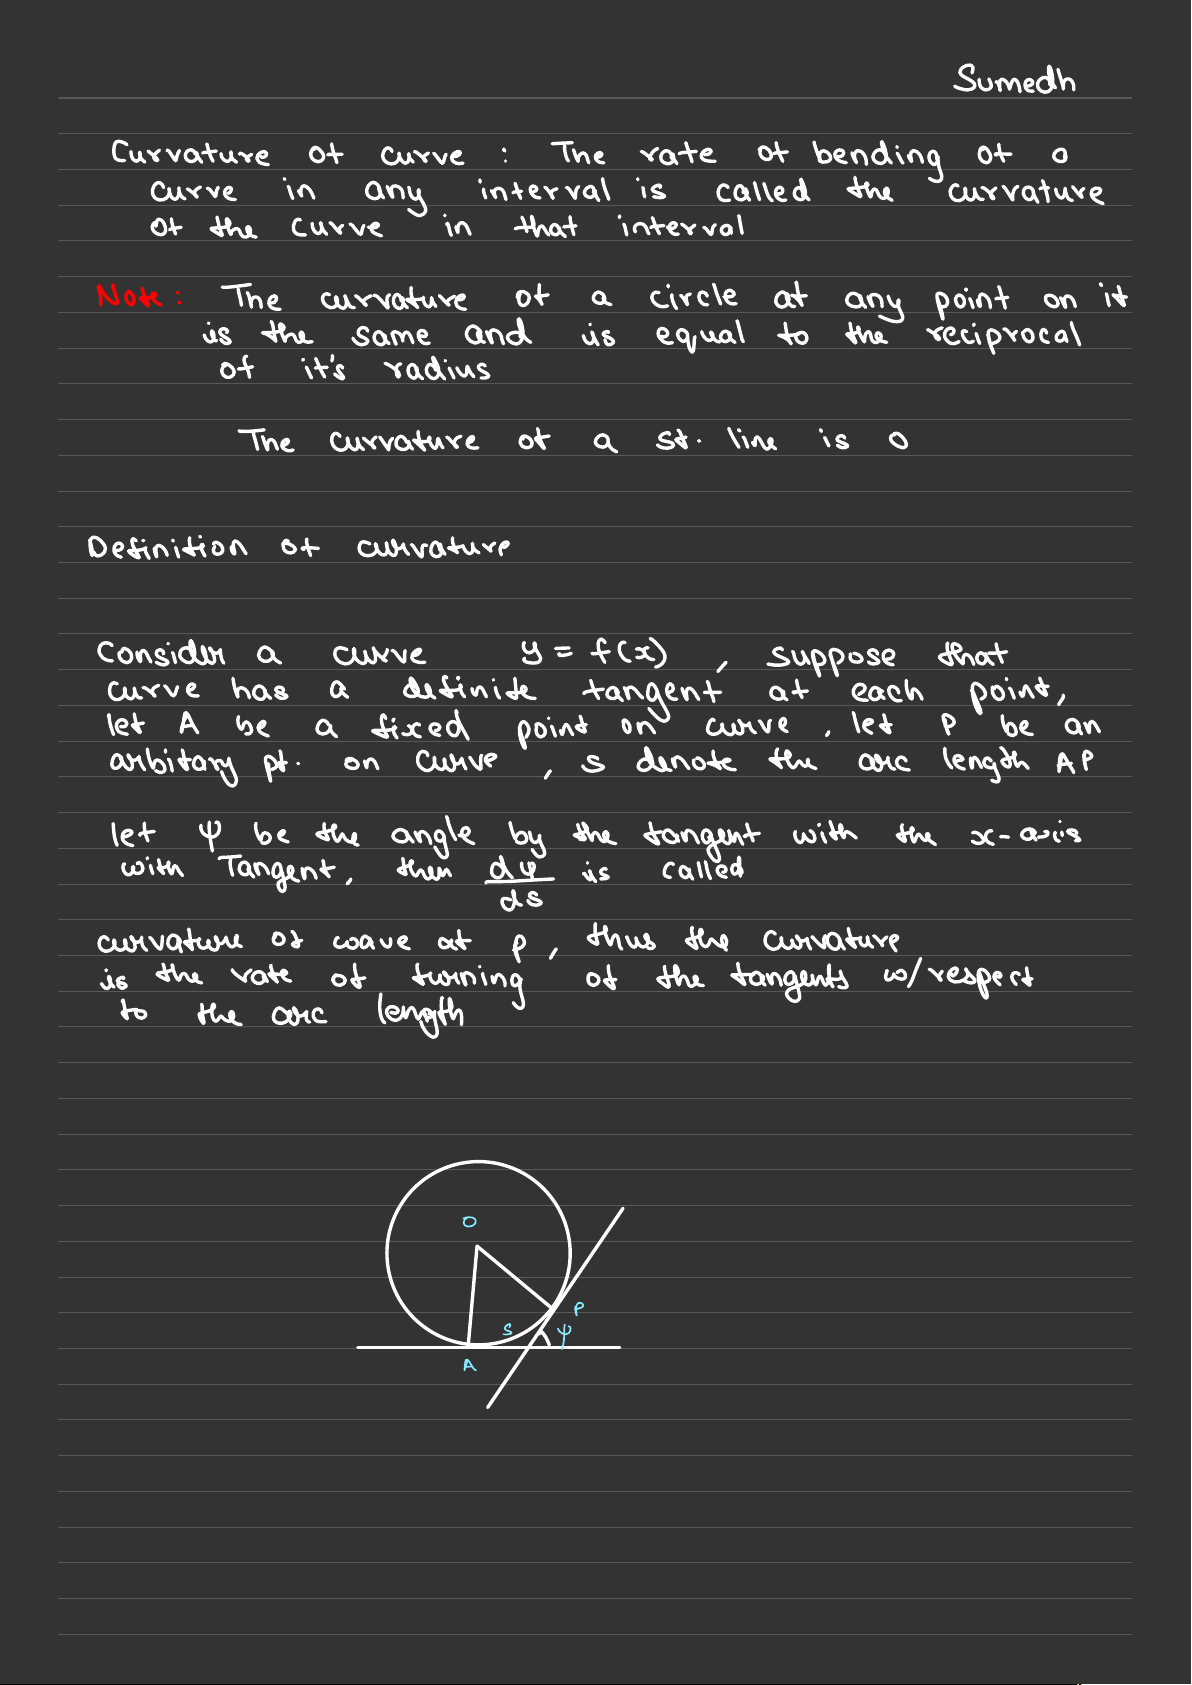 Sumedh
Curvature of curve : The rate of bending of a
curve in any interval is called the curvature
of the curve in that interval
Note: The curvature of a circle at any point on it
is the same and is equal to the reciprocal
of it's radius
The curvature of a st. line is 0
Definition of curvature
Consider a curve y = f(x) , suppose that
curve has a definite tangent at each point,
let A be a fixed point on curve, let P be an
arbitary pt. on curve , s denote the arc length AP
let ψ be the angle by the tangent with the x-axis
with Tangent, then dψ/ds is called
curvature of wave at p, thus the curvature
is the rate of turning of the tangents w/respect
to the arc length
O
P
S
ψ
A